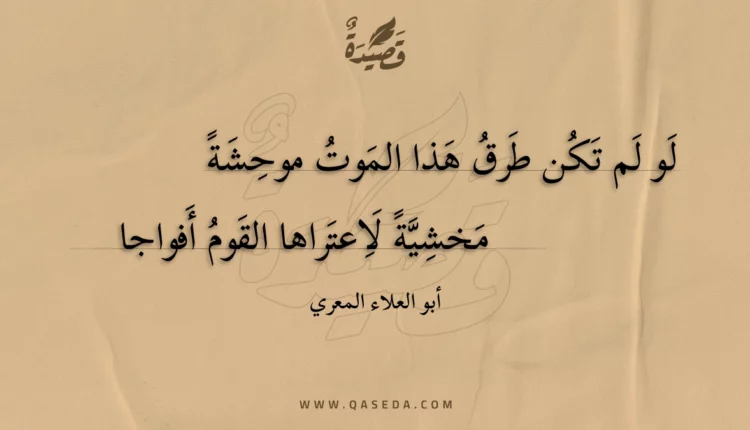 قَصِيدَةٌ
لَو لَم تَكُن طَرقُ هَذا المَوتُ موحِشَةً
مَخشِيَّةً لَاِعتَراها القَومُ أَفواجا
أبو العلاء المعري
WWW.QASEDA.COM